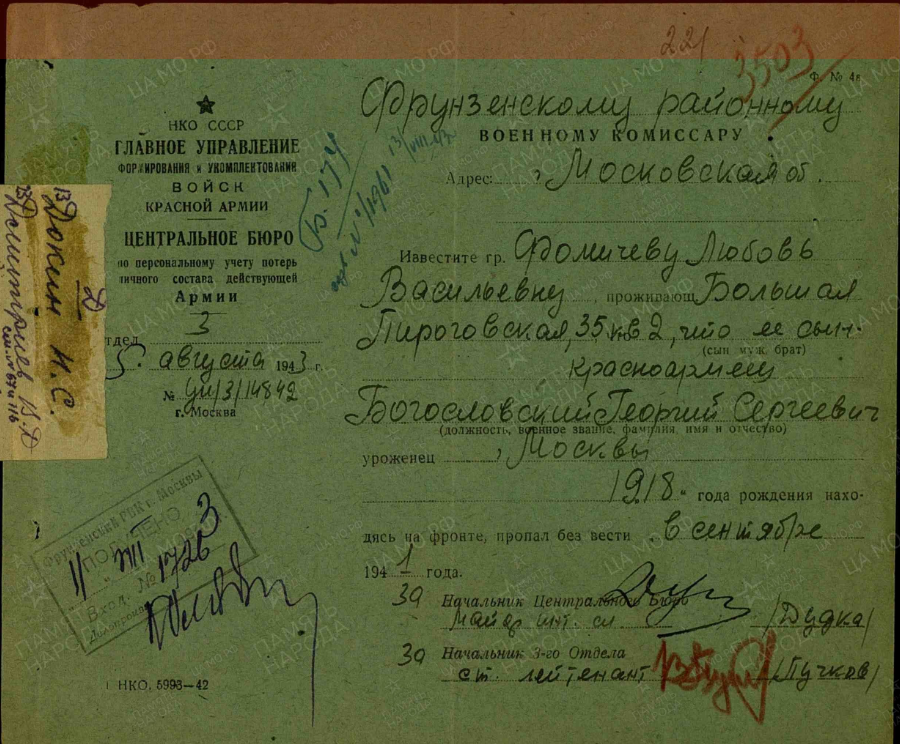 221
3503
Ф № 4в
НКО СССР
ГЛАВНОЕ УПРАВЛЕНИЕ
ФОРМИРОВАНИЯ и УКОМПЛЕКТОВАНИЯ
ВОЙСК
КРАСНОЙ АРМИИ
ЦЕНТРАЛЬНОЕ БЮРО
по персональному учету потерь
личного состава действующей
Армии
отдел 3
5. августа 1943 г.
№ 14842
г. Москва
Фрунзенскому районному
ВОЕННОМУ КОМИССАРУ
Адрес: г Московская об.
Известите гр. Фомичеву Любовь
Васильевну, проживающ. Большая
Пироговская, 35 кв 2, что ее сын-
(сын муж, брат)
красноармеец
Богословский Георгий Сергеевич
(должность, военное звание, фамилия, имя и отчество)
уроженец г Москвы
1918 года рождения нахо-
дясь на фронте, пропал без вести в сентябре
1941 года.
За Начальник Центрального Бюро
майор инт. сл. /Дудка/
За Начальник 3-го Отдела
ст. лейтенант /Пучков/
Б. 174
13/VIII 43
Докин И. С.
Д
Дмитриев В. Д
Фрунзенский РВК г. Москвы
ПОЛУЧЕНО
11 VIII 3
Вход. № 1726
НКО, 5993—42